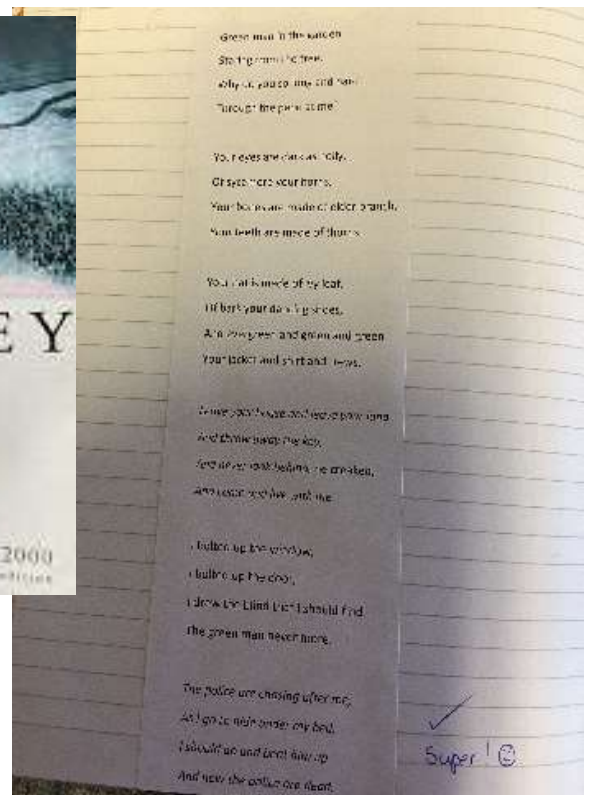 EY
2000
edition
Green man in the garden
Staring from the tree,
Why do you so long and hard
Through the pane at me?
Your eyes are dark as holly,
Of sycamore your horns,
Your bones are made of elder branch,
Your teeth are made of thorns.
Your hat is made of ivy leaf,
Of bark your dancing shoes,
And evergreen and green and green
Your jacket and shirt and trews.
Leave your house and leave your land
And throw away the key,
And never look behind, he creaked,
And come and live with me.
I bolted up the window,
I bolted up the door,
I drew the blind that I should find
The green man never more.
The police are chasing after me,
As I go to hide under my bed,
I should up and
And now the police are dead.
Super!